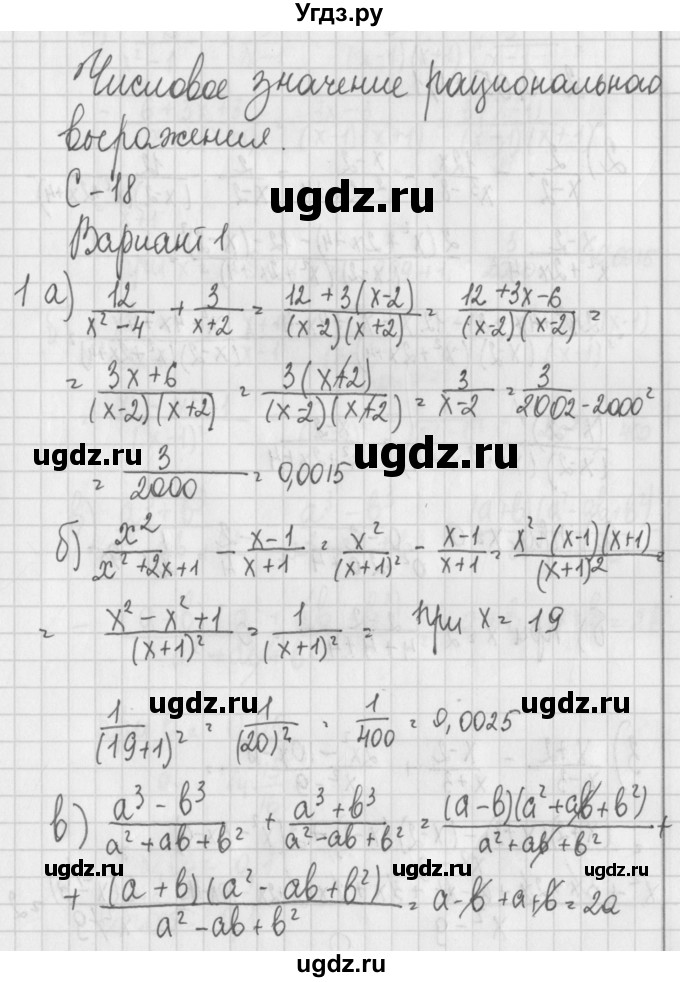 Угдз.ру
Числовое значение рационального
выражения.
С-18
ugdz.ru
Вариант 1
1 а) 12/(x²-4) + 3/(x+2) = (12+3(x-2))/((x-2)(x+2)) = (12+3x-6)/((x-2)(x-2)) =
= (3x+6)/((x-2)(x+2)) = 3(x+2)/((x-2)(x+2)) = 3/(x-2) = 3/(2002-2000²
ugdz.ru ugdz.ru
= 3/2000 = 0,0015
б) x²/(x²+2x+1) - (x-1)/(x+1) = x²/(x+1)² - (x-1)/(x+1) = (x²-(x-1)(x+1))/(x+1)² =
= (x²-x²+1)/(x+1)² = 1/(x+1)² = при x = 19
ugdz.ru ugdz.ru
1/(19+1)² = 1/(20)² = 1/400 = 0,0025
в) (a³-b³)/(a²+ab+b²) + (a³+b³)/(a²-ab+b²) = (a-b)(a²+ab+b²)/(a²+ab+b²) +
ugdz.ru ugdz.ru
+ (a+b)(a²-ab+b²)/(a²-ab+b²) = a-b+a+b = 2a
ugdz.ru